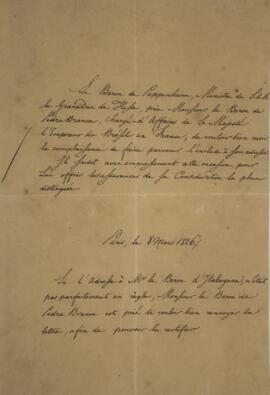 Le Baron de Pappenheim, Ministre de S.A.R.
le Grand Duc de Hesse, prie Monsieur le Baron de
Pedra Branca, chargé d'Affaires de Sa Majesté
l'Empereur du Brésil en France, de vouloir bien avoir
la complaisance de faire parvenir l'incluse à son adresse.
Il saisit avec empressement cette occasion, pour
lui offrir les assurances de sa Considération la plus
distinguée.
Paris, le 8 Mars 1826.
Si l'Adresse à Mr. le Baron d'Itabayana, n'était
pas parfaitement en règle, Monsieur le Baron de
Pedra Branca est prié de vouloir bien renvoyer la
lettre, afin de pouvoir la rectifier.